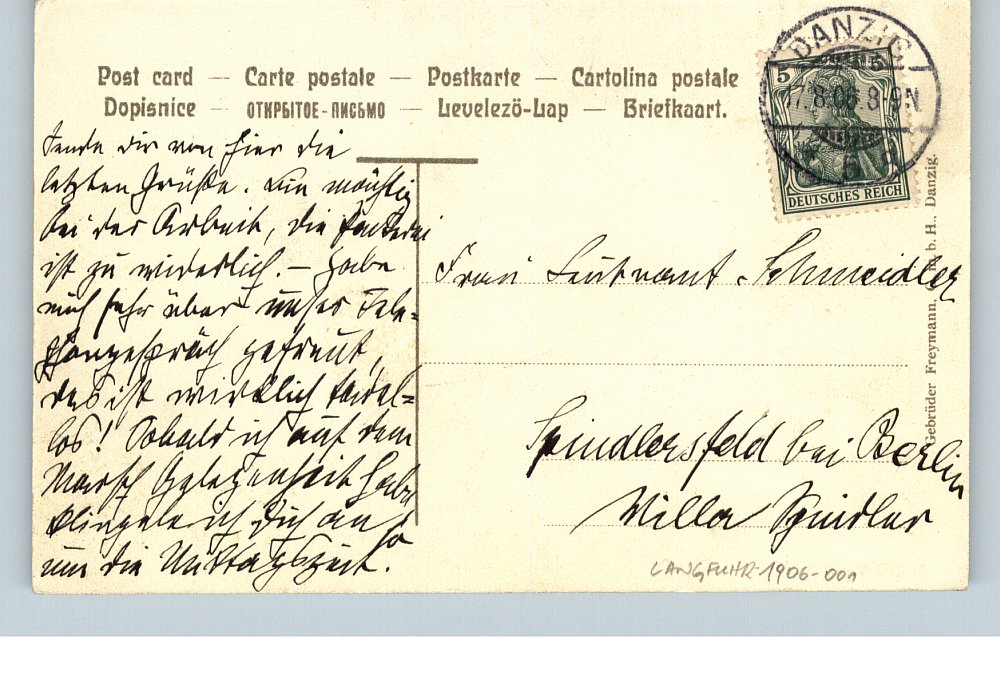 Post card — Carte postale — Postkarte — Cartolina postale
Dopisnice — ОТКРЫТОЕ-ПИСЬМО — Levelezö-Lap — Briefkaart.
DANZIG
17.8.06.8-9N
5 5
DEUTSCHES REICH
Sende dir von hier die
letzten Grüße. Bin mächtig
bei der Arbeit, die
ist zu widerlich. — Habe
mich sehr über unser Tele=
phongespräch gefreut,
das ist wirklich tadel=
los! Sobald ich auf dem
Marsch Gelegenheit habe
klingele ich Dich an so
um die Mittagszeit.
Frau Leutnant Schmeidler
Spindlersfeld bei Berlin
Villa Spindler
Gebrüder Freymann, G. m. b. H., Danzig.
LANGFUHR-1906-001